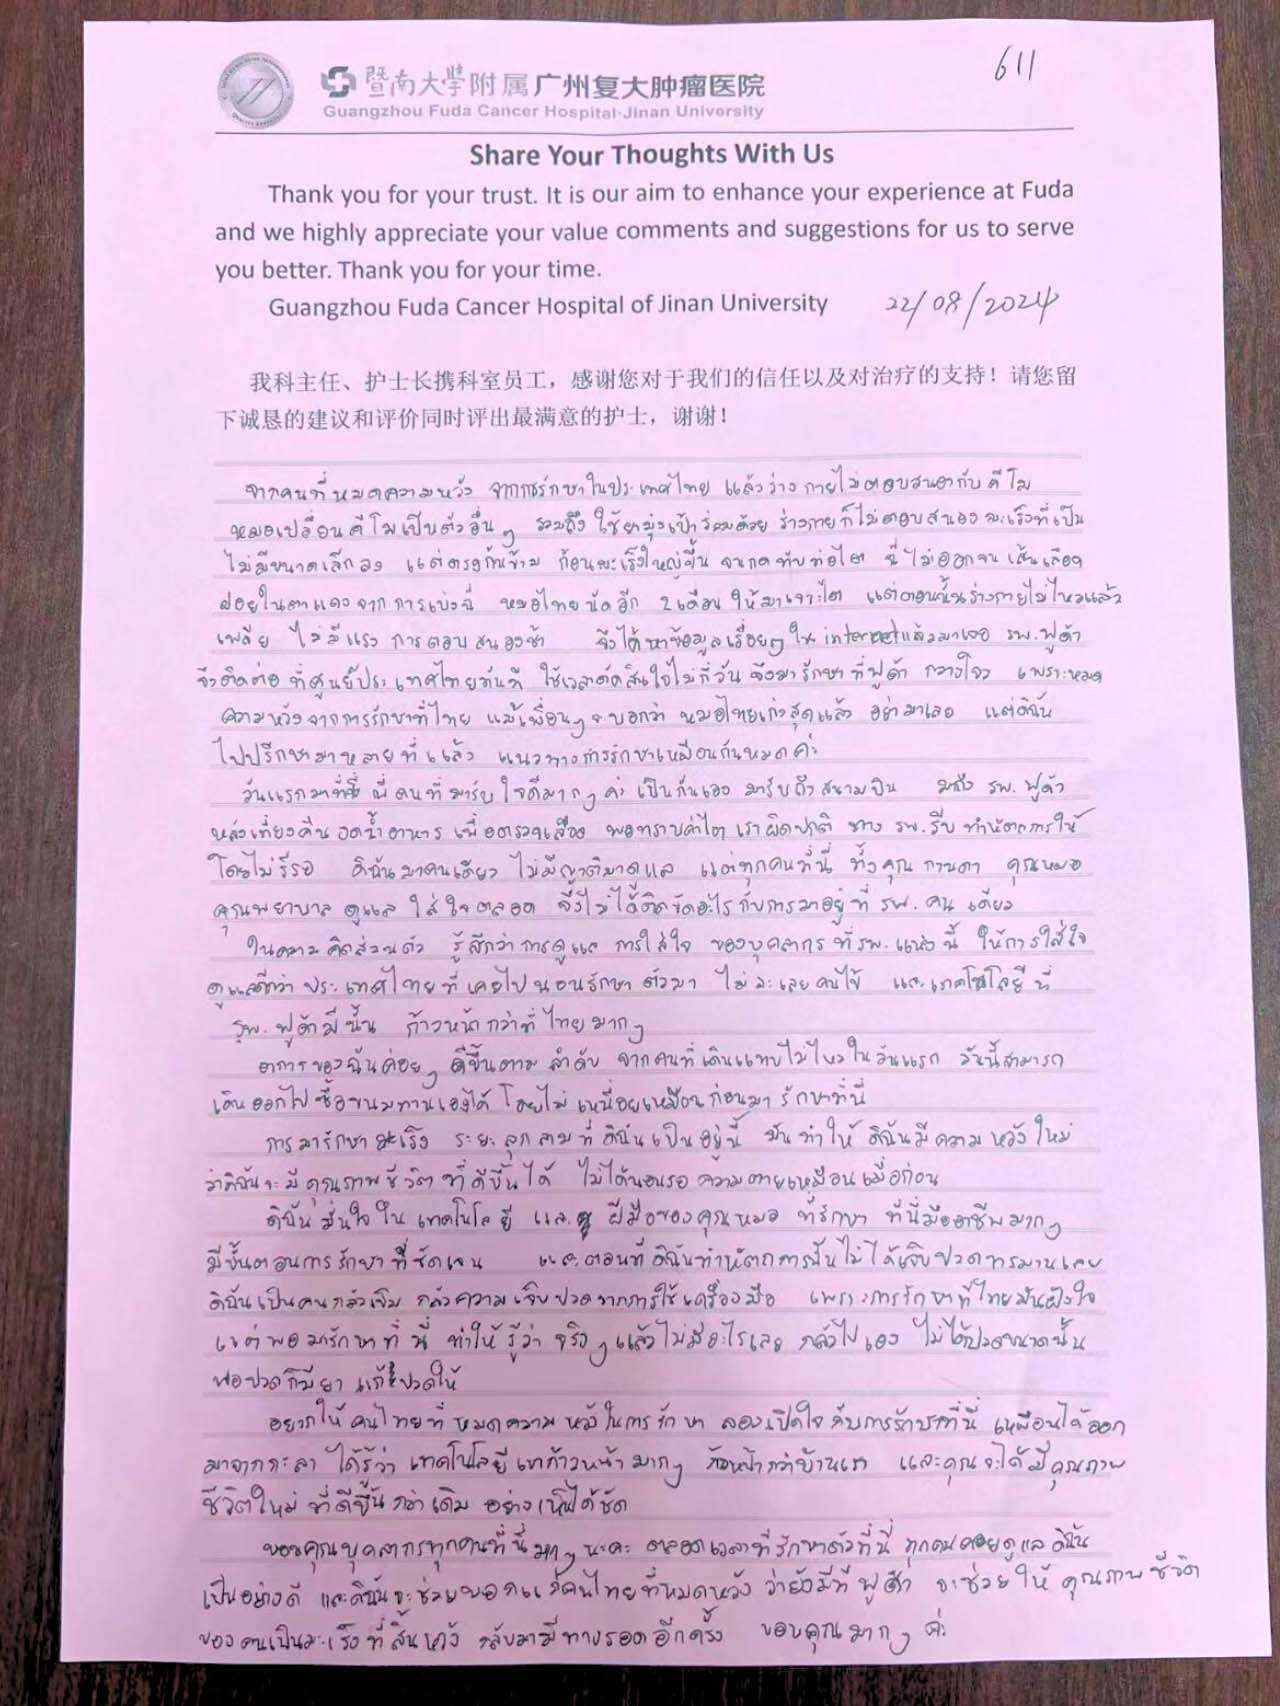 611
暨南大學附属广州复大肿瘤医院
Guangzhou Fuda Cancer Hospital·Jinan University
Share Your Thoughts With Us
Thank you for your trust. It is our aim to enhance your experience at Fuda
and we highly appreciate your value comments and suggestions for us to serve
you better. Thank you for your time.
Guangzhou Fuda Cancer Hospital of Jinan University 22/08/2024
我科主任、护士长携科室员工，感谢您对于我们的信任以及对治疗的支持！请您留
下诚恳的建议和评价同时评出最满意的护士，谢谢！
จากคนที่หมดความหวัง จากการรักษาในประเทศไทย แล้วร่างกายไม่ตอบสนองกับคีโม
หมอเปลี่ยนคีโมเป็นตัวอื่นๆ รวมถึง ใช้ยามุ่งเป้าร่วมด้วย ร่างกายก็ไม่ตอบสนอง มะเร็งที่เป็น
ไม่มีขนาดเล็กลง แต่ตรงกันข้าม ก้อนมะเร็งใหญ่ขึ้น จนกดทับท่อไต ฉี่ไม่ออกจนเส้นเลือด
ฝอยในตาแดงจากการเบ่งฉี่ หมอไทยนัดอีก 2 เดือน ให้มาเจาะไต แต่ตอนนั้นร่างกายไม่ไหวแล้ว
เพลีย ไม่มีแรง การตอบสนองช้า จึงได้หาข้อมูลเรื่อยๆ ใน internet แล้วมาเจอ รพ.ฟูด้า
จึงติดต่อ ที่ศูนย์ประเทศไทยทันที ใช้เวลาตัดสินใจไม่กี่วัน จึงมารักษาที่ฟูด้า กวางโจว เพราะหมด
ความหวังจากการรักษาที่ไทย แม้เพื่อนๆ จะบอกว่า หมอไทยเก่งสุดแล้ว อย่ามาเลย แต่ดิฉัน
ไปปรึกษามาหลายที่แล้ว แนวทางการรักษาเหมือนกันหมดค่ะ
วันแรกมาที่นี่ พี่คนที่มารับ ใจดีมากๆ ค่ะ เป็นกันเอง มารับถึงสนามบิน มาถึง รพ.ฟูด้า
หลังเที่ยงคืน งดน้ำอาหาร เพื่อตรวจเลือด พอทราบค่าไตเราผิดปกติ ทาง รพ.รีบทำหัตถการให้
โดยไม่รีรอ ดิฉันมาคนเดียว ไม่มีญาติมาดูแล แต่ทุกคนที่นี่ ทั้งคุณกานดา คุณหมอ
คุณพยาบาล ดูแล ใส่ใจตลอด จึงไม่ได้ติดขัดอะไรกับการมาอยู่ที่ รพ. คนเดียว
ในความคิดส่วนตัว รู้สึกว่าการดูแล การใส่ใจ ของบุคลากรที่รพ.แห่งนี้ ให้การใส่ใจ
ดูแลดีกว่าประเทศไทยที่เคยไปนอนรักษาตัวมา ไม่ละเลยคนไข้ และเทคโนโลยีที่
รพ.ฟูด้ามีนั้น ก้าวหน้ากว่าที่ไทยมากๆ
อาการของฉันค่อยๆ ดีขึ้นตามลำดับ จากคนที่เดินแทบไม่ไหวในวันแรก วันนี้สามารถ
เดินออกไปซื้อขนมทานเองได้ โดยไม่เหนื่อยเหมือนก่อนมารักษาที่นี่
การมารักษามะเร็ง ระยะลุกลามที่ดิฉันเป็นอยู่นี้ มันทำให้ดิฉันมีความหวังใหม่
ว่าดิฉันจะมีคุณภาพชีวิตที่ดีขึ้นได้ ไม่ได้นอนรอความตายเหมือนเมื่อก่อน
ดิฉันมั่นใจในเทคโนโลยี และฝีมือของคุณหมอ ที่รักษา ที่นี่มืออาชีพมากๆ
มีขั้นตอนการรักษาที่ชัดเจน และตอนที่ดิฉันทำหัตถการนั้นไม่ได้เจ็บปวดทรมานเลย
ดิฉันเป็นคนกลัวเข็ม กลัวความเจ็บปวดจากการใช้เครื่องมือ เพราะการรักษาที่ไทยมันฝังใจ
แต่พอมารักษาที่นี่ ทำให้รู้ว่า จริงๆ แล้วไม่มีอะไรเลย กลัวไปเอง ไม่ได้ปวดขนาดนั้น
พอปวดก็มียาแก้ปวดให้
อยากให้คนไทยที่หมดความหวังในการรักษา ลองเปิดใจกับการรักษาที่นี่ เหมือนได้ออก
มาจากกะลา ได้รู้ว่าเทคโนโลยีเขาก้าวหน้ามากๆ ก้าวหน้ากว่าบ้านเรา และคุณจะได้มีคุณภาพ
ชีวิตใหม่ ที่ดีขึ้นกว่าเดิม อย่างเห็นได้ชัด
ขอบคุณบุคลากรทุกคนที่นี่มากๆ นะคะ ตลอดเวลาที่รักษาตัวที่นี่ ทุกคนคอยดูแลดิฉัน
เป็นอย่างดี และดิฉันจะช่วยบอกแก่คนไทยที่หมดหวัง ว่ายังมีที่ฟูด้า จะช่วยให้คุณภาพชีวิต
ของคนเป็นมะเร็งที่สิ้นหวัง กลับมามีทางรอดอีกครั้ง ขอบคุณมากๆ ค่ะ